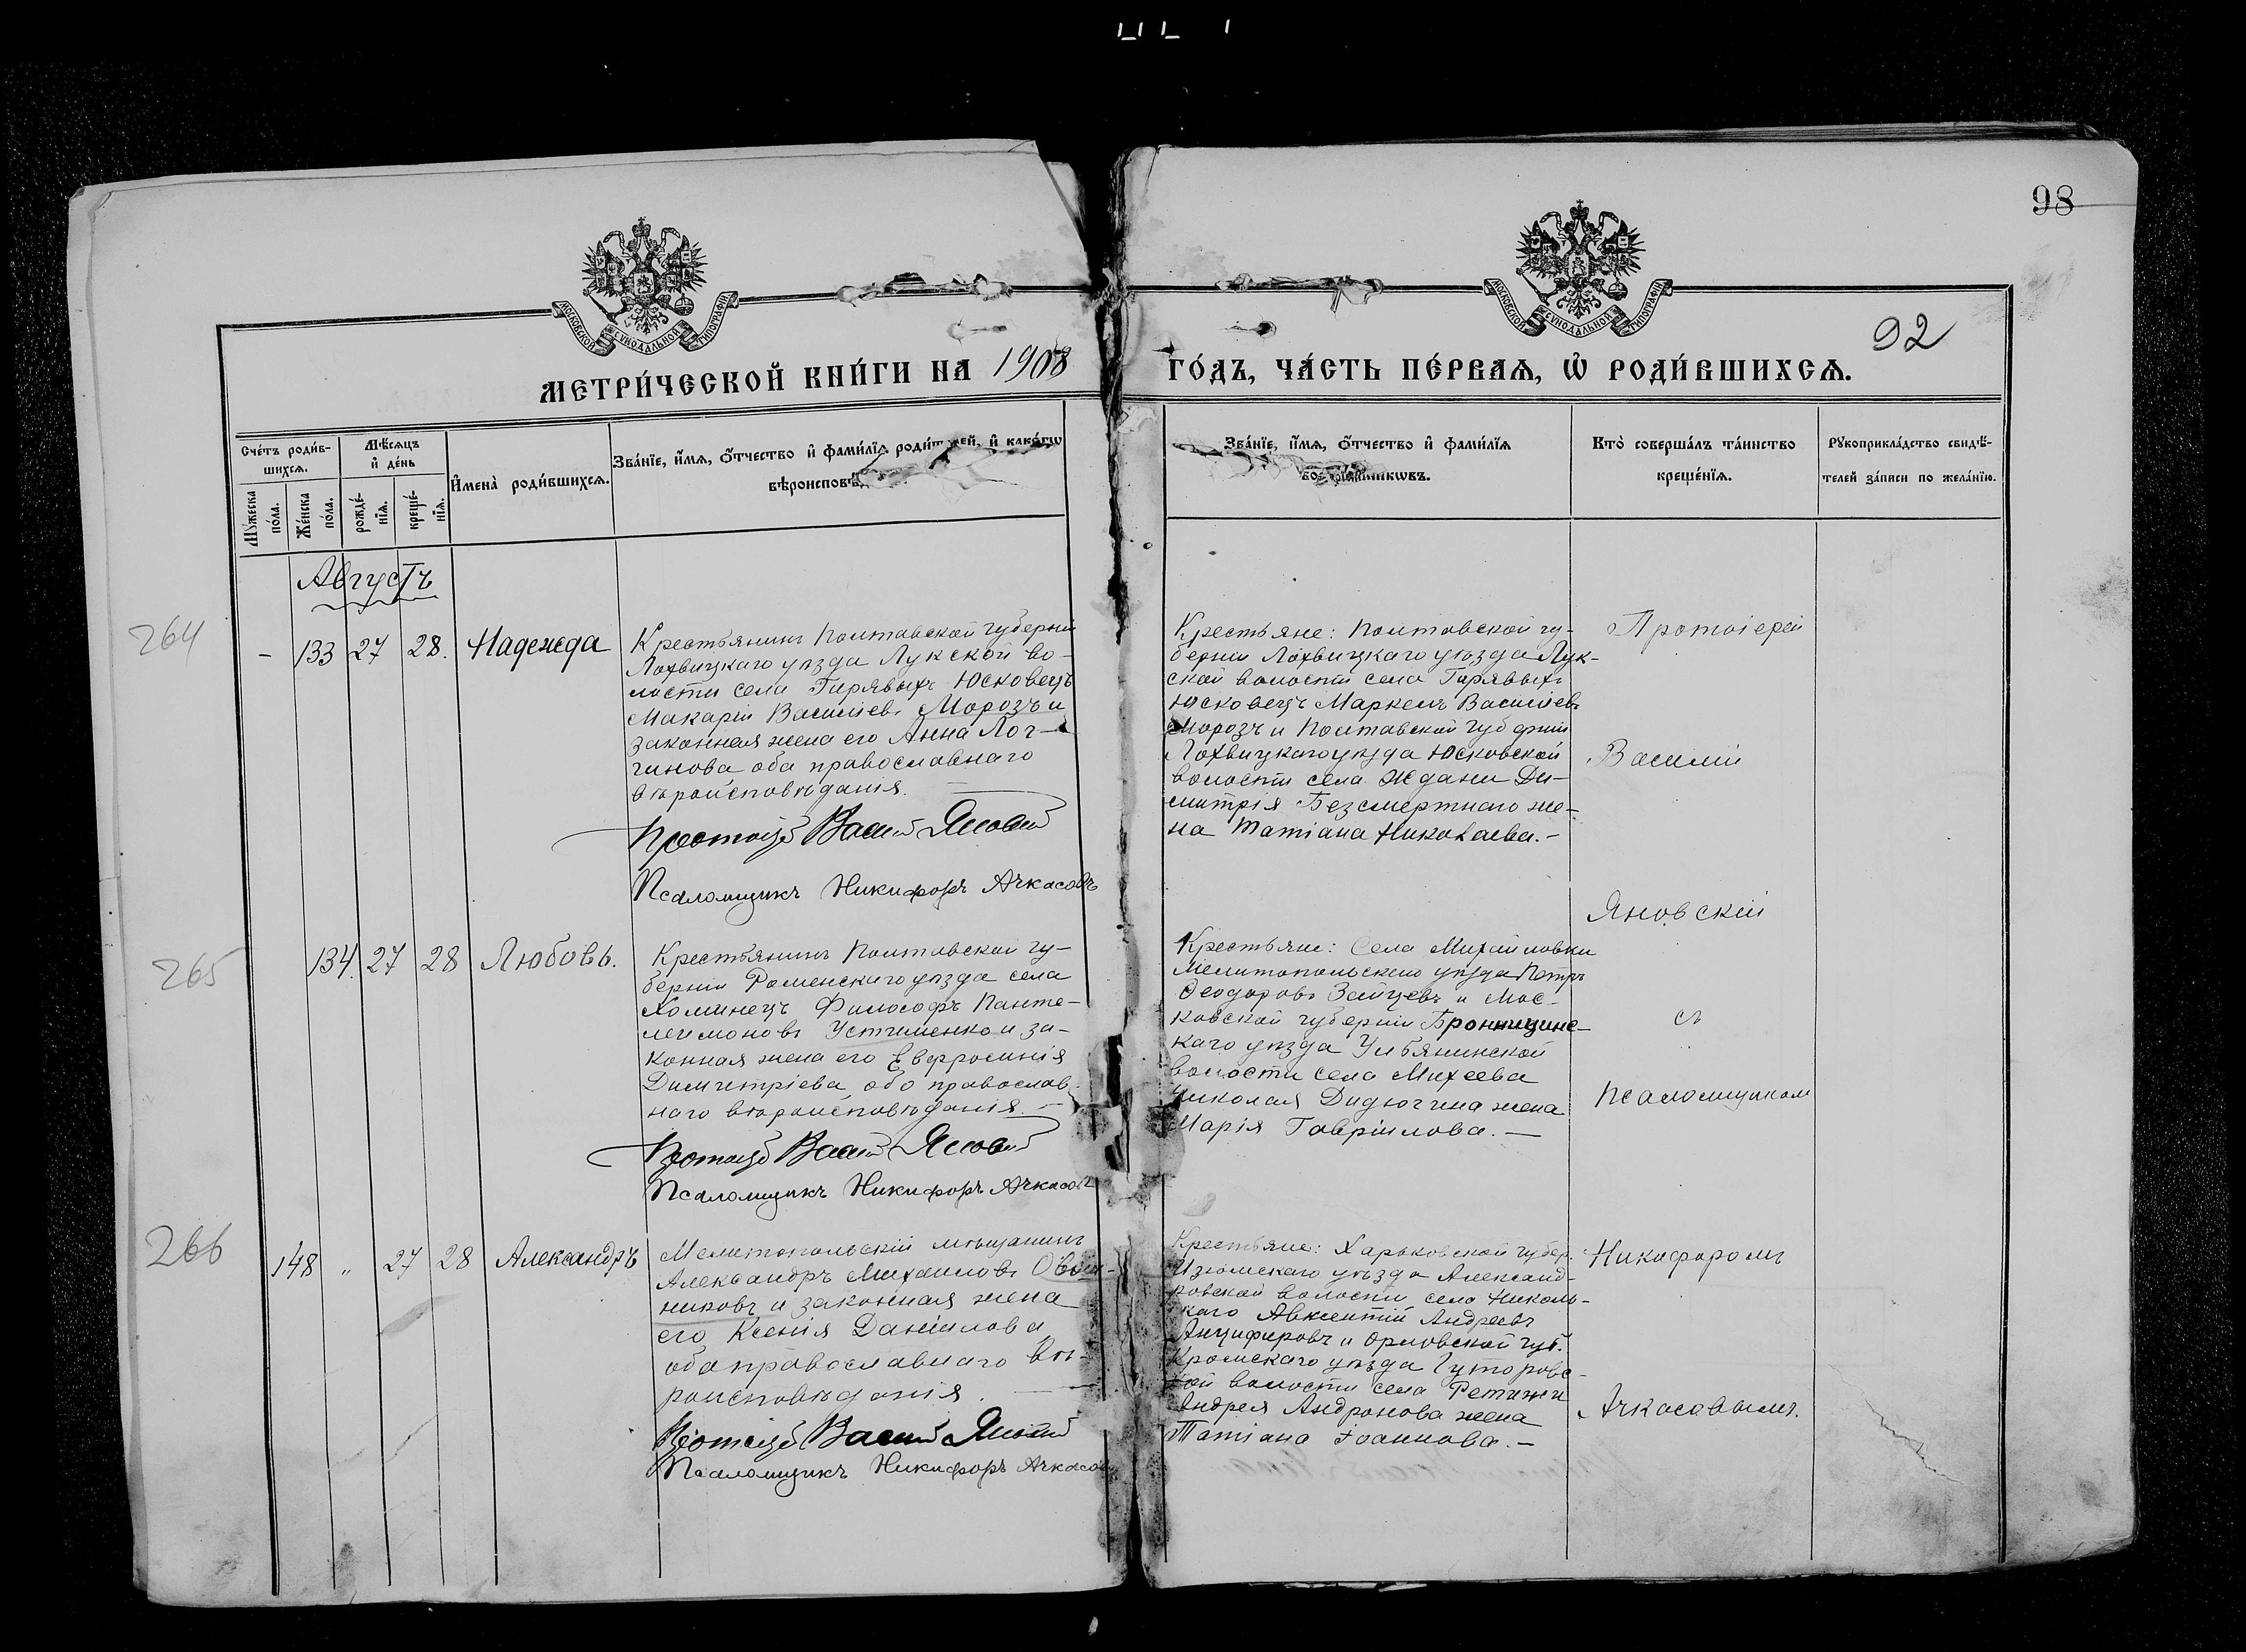 98
92
МОСКОВСКОЙ СѴНОДАЛЬНОЙ ТИПОГРАФІИ
МОСКОВСКОЙ СѴНОДАЛЬНОЙ ТИПОГРАФІИ
МЕТРИ́ЧЕСКОЙ КНИ́ГИ НА 1908 ГО́ДЪ, ЧА́СТЬ ПЕ́РВАѦ, Ѡ҆ РОДИ́ВШИХСѦ.
Сче́тъ роди́в-
шихсѧ.
Мѣ́сѧцъ
и҆ де́нь
И҆мена̀ роди́вшихсѧ.
Зва́нїе, и҆́мѧ, ѻ҆́тчество и҆ фами́лїѧ роди́телей, и҆ како́гѡ
вѣроисповѣд
Мꙋ́жеска
по́ла.
Же́нска
по́ла.
рожде́-
нїѧ.
креще́-
нїѧ.
Зва́нїе, и҆́мѧ, ѻ҆́тчество и҆ фами́лїѧ
воспрїе́мникѡвъ.
Кто̀ соверша́лъ та́инство
креще́нїѧ.
Рꙋкоприкла́дство свидѣ́-
телей за́писи по жела́нїю.
Августъ
264
- 133 27 28. Надежда
Крестьянинъ Полтавской губерніи
Лохвицкаго уѣзда Лукской во-
лости села Гирявыхъ Юсковецъ
Макарій Васильевъ Морозъ и
законная жена его Анна Лог-
гинова оба православнаго
вѣроисповѣданія.
Протоіер Васил Яновскій
Псаломщикъ Никифоръ Ачкасовъ
Крестьяне: Полтавской гу-
берніи Лохвицкаго уѣзда Лук-
ской волости села Гирявыхъ
Юсковецъ Маркелъ Васильевъ
Морозъ и Полтавской губерніи
Лохвицкаго уѣзда Юсковской
волости села Ждани Ди-
митрія Безсмертнаго же-
на Татіана Николаева.-
Протоіерей
Василій
Яновскій
265
134. 27 28 Любовь.
Крестьянинъ Полтавской гу-
берніи Роменскаго уѣзда села
Хоминецъ Философъ Панте-
леимоновъ Устименко и за-
конная жена его Евфросинія
Димитріева обо православ-
наго вѣроисповѣданія.-
Протоіер Васил Яновскій
Псаломщикъ Никифоръ Ачкасовъ
Крестьяне: Села Михайловки
Мелитопольскаго уѣзда Петръ
Феодоровъ Зайцевъ и Мос-
ковской губерніи Бронницинс-
каго уѣзда Ульянинской
волости села Михеева
Николая Дидючина жена
Марія Гавріилова.-
съ
Псаломщикомъ
266
148 " 27 28 Александръ
Мелитопольскій мѣщанинъ
Александръ Михаиловъ Овчин-
никовъ и законная жена
его Ксенія Даніилова
оба православнаго вѣ-
роисповѣданія.
Протоіер Васил Яновскій
Псаломщикъ Никифоръ Ачкасовъ
Крестьяне: Харьковской губер.
Изюмскаго уѣзда Александ-
ровской волости села Николь-
скаго Авксентій Андреевъ
Анциферовъ и Орловской губ.
Кромскаго уѣзда Гуторовс-
кой волости села Ретяжи
Андрея Андронова жена
Татіана Іоаннова.-
Никифоромъ
Ачкасовымъ.